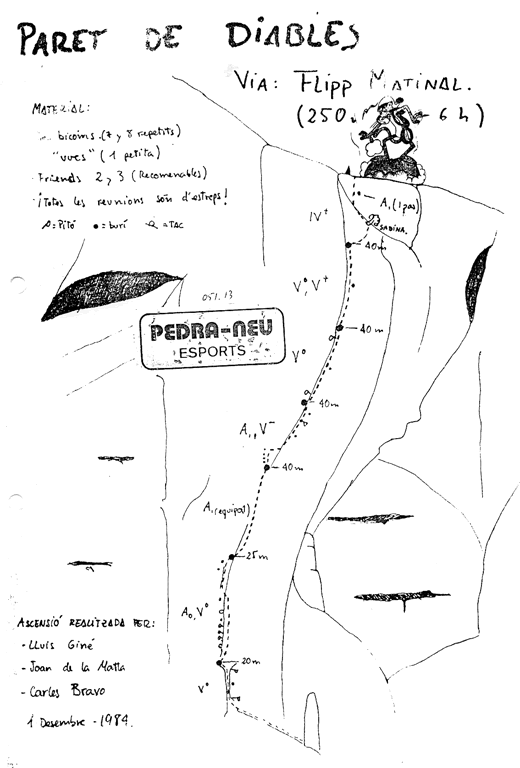 PARET DE DIABLES
VIA: FLIPP MATINAL.
(250 - 6 h)
MATERIAL:
bicoins (7 y 8 repetits)
"vues" (1 petita)
Friends 2 y 3 (Recomenables)
¡Totes les reunions són d'estreps!
=Pitó ●=burí =TAC
A₁ (1 pas)
IV⁺
SABINA.
40m
V°, V⁺
051.13
PEDRA-NEU
ESPORTS
40m
V°
40m
A₁, V⁻
40m
A₁ (equipat)
25m
A₀, V°
20m
V°
ASCENSIÓ REALITZADA PER:
- LLUÍS Giné
- Joan de la Matta
- Carles Bravo
1 Desembre - 1984.